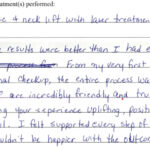 tment(s) performed:
e & neck lift with laser treatmen
results were better than I had e
From my very first
nal checkup, the entire process wa
are incredibly friendly and tru
ng your experience uplifting, positi
l. I felt supported every step of
uldn't be happier with the outco